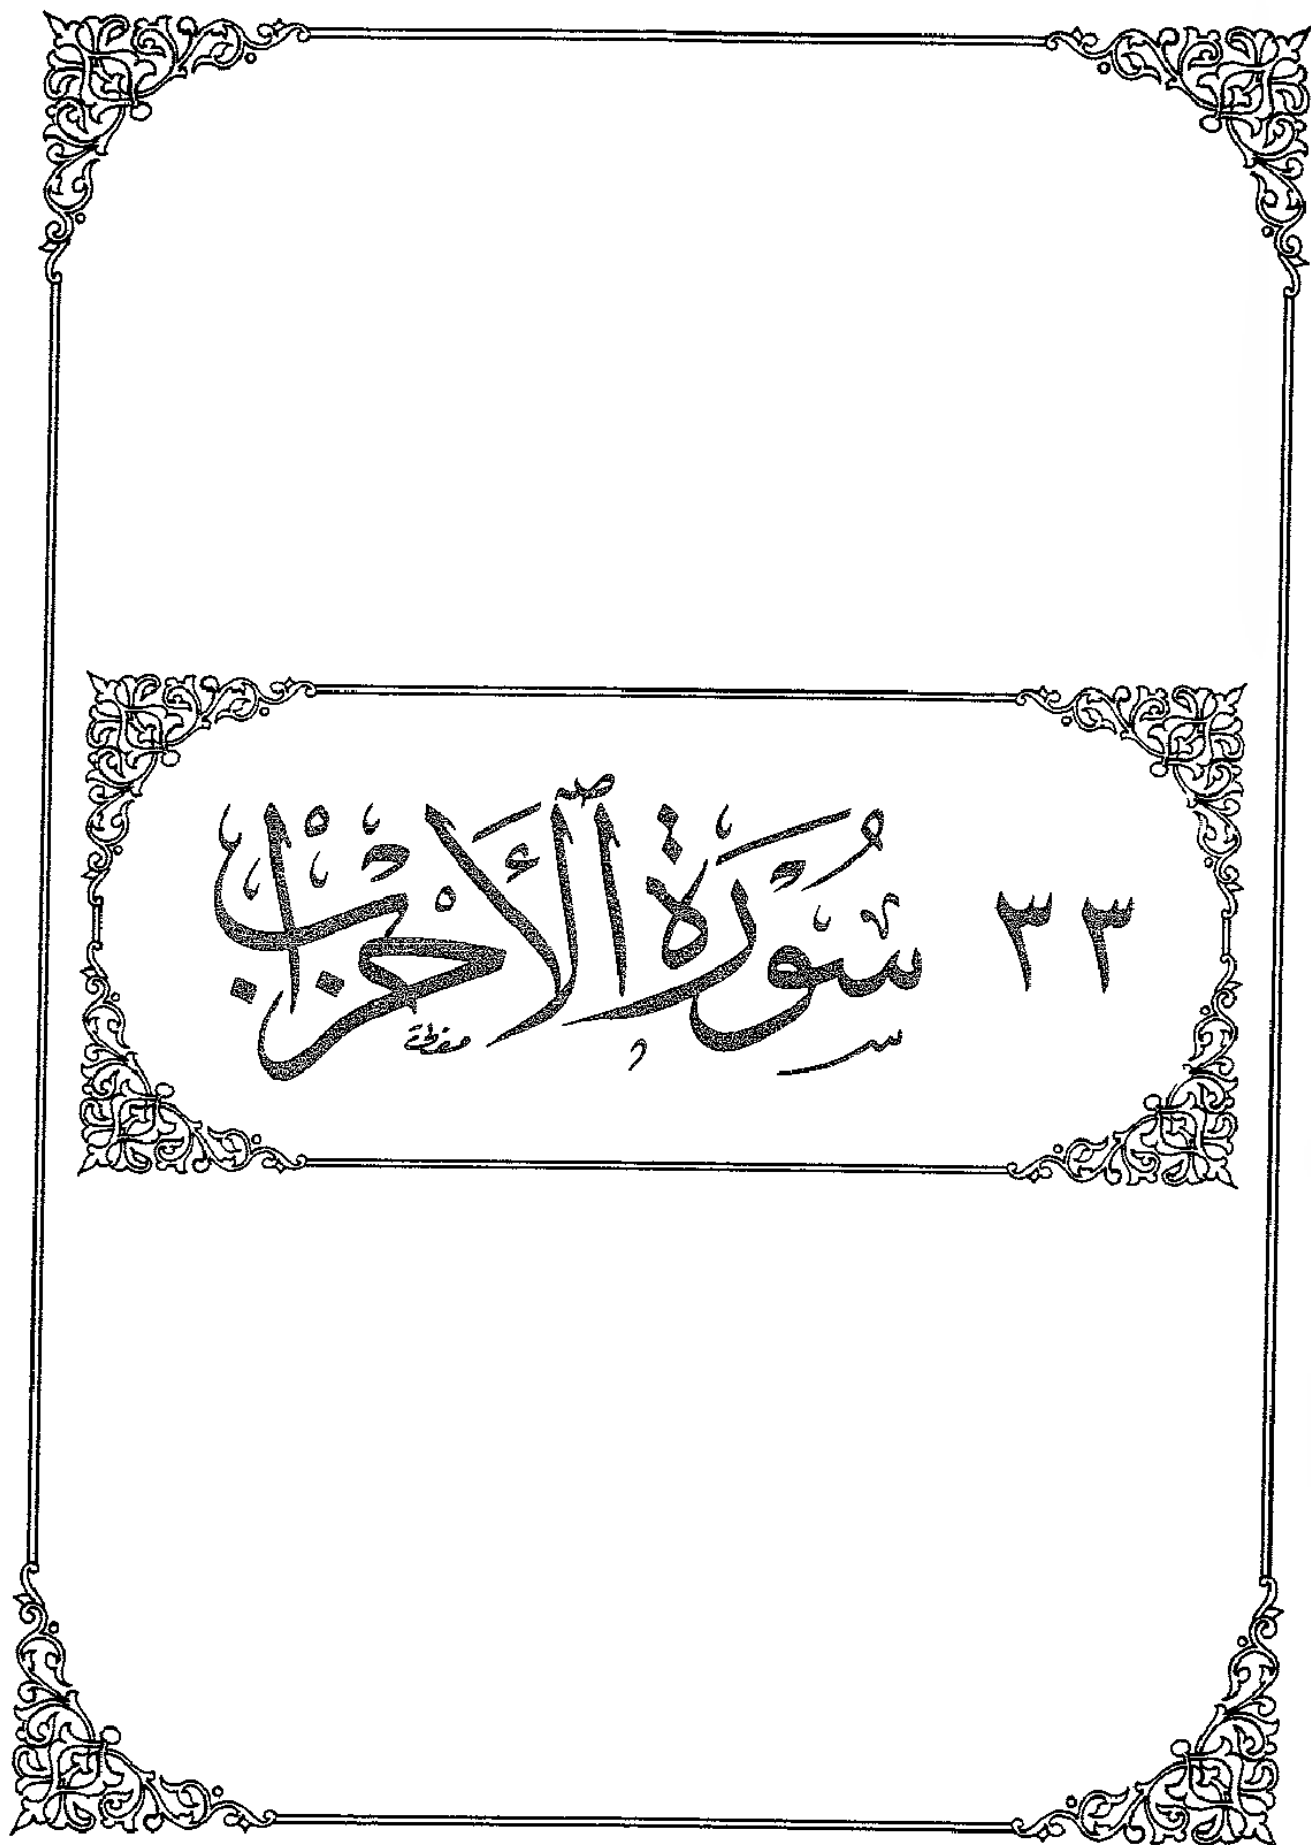 ٣٣ سُورَةُ ٱلْأَحْزَابِ